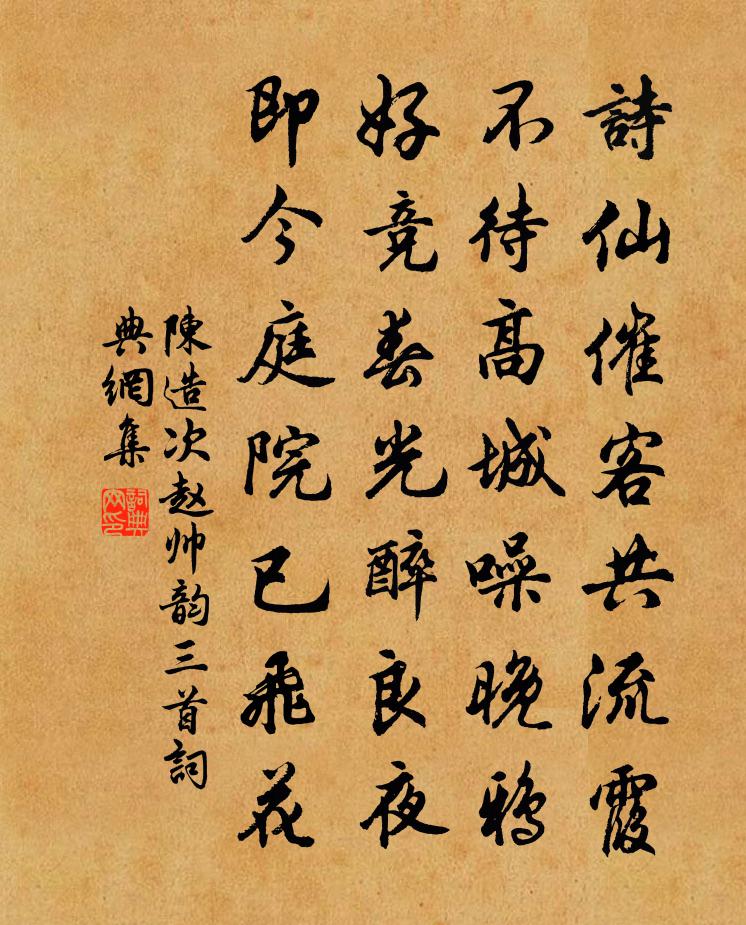 詩仙催客共流霞
不待高城噪晚鴉
好竞春光醉良夜
即今庭院已飛花
陳造次赵帅韵三首詞
典網集
詞典網印